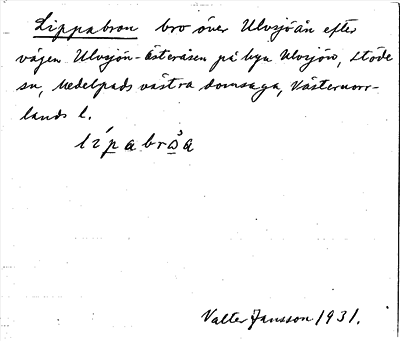 Lippabron bro över Ulvsjöån efter
vägen Ulvsjön-Österåsen på byn Ulvsjön, Stöde
sn, Medelpads västra domsaga, Västernorr-
lands l.
Valter Jansson 1931.